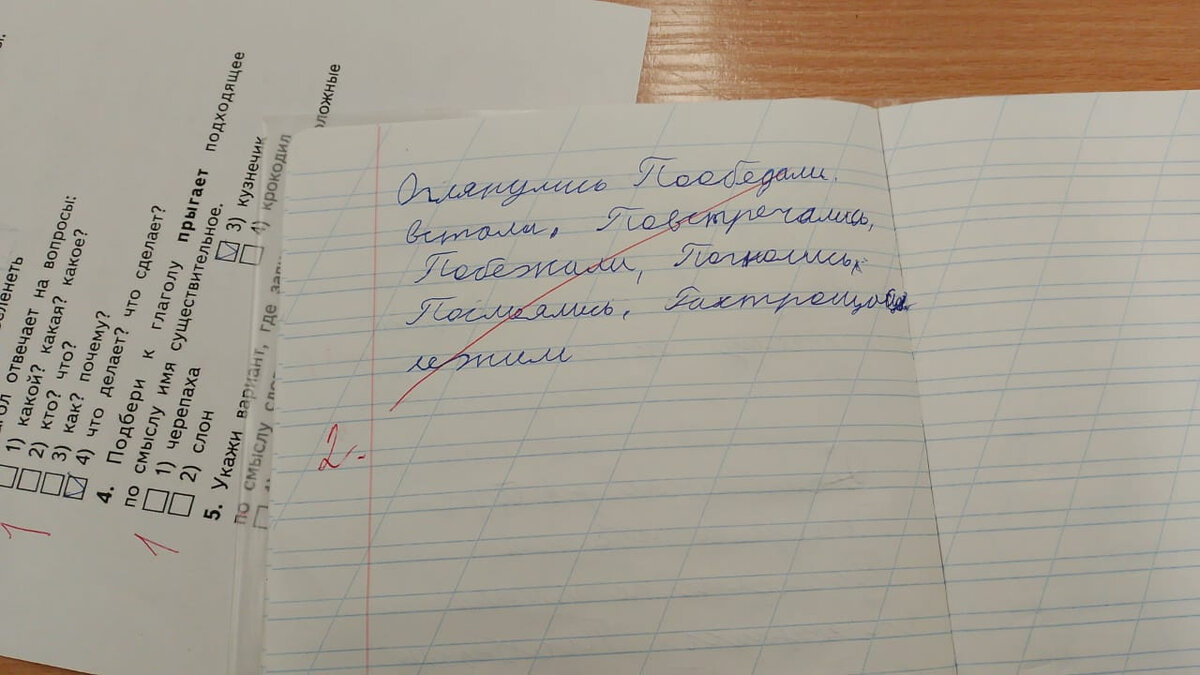 зеленеть
гол отвечает на вопросы:
1) какой? какая? какое?
2) кто? что?
3) как? почему?
4) что делает? что сделает?
4. Подбери к глаголу прыгает подходящее
по смыслу имя существительное.
1) черепаха
2) слон
3) кузнечик
4) крокодил
5. Укажи вариант, где
по смыслу
ложные
1
1
Оглянулись Пообедали.
встали, Повстречались,
Побежали, Погнолись
Посмеялись,
лежим
2-